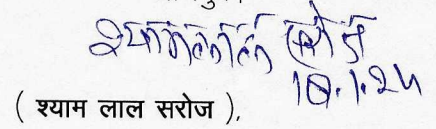 श्यामलाल सरोज
18.1.24
( श्याम लाल सरोज ),